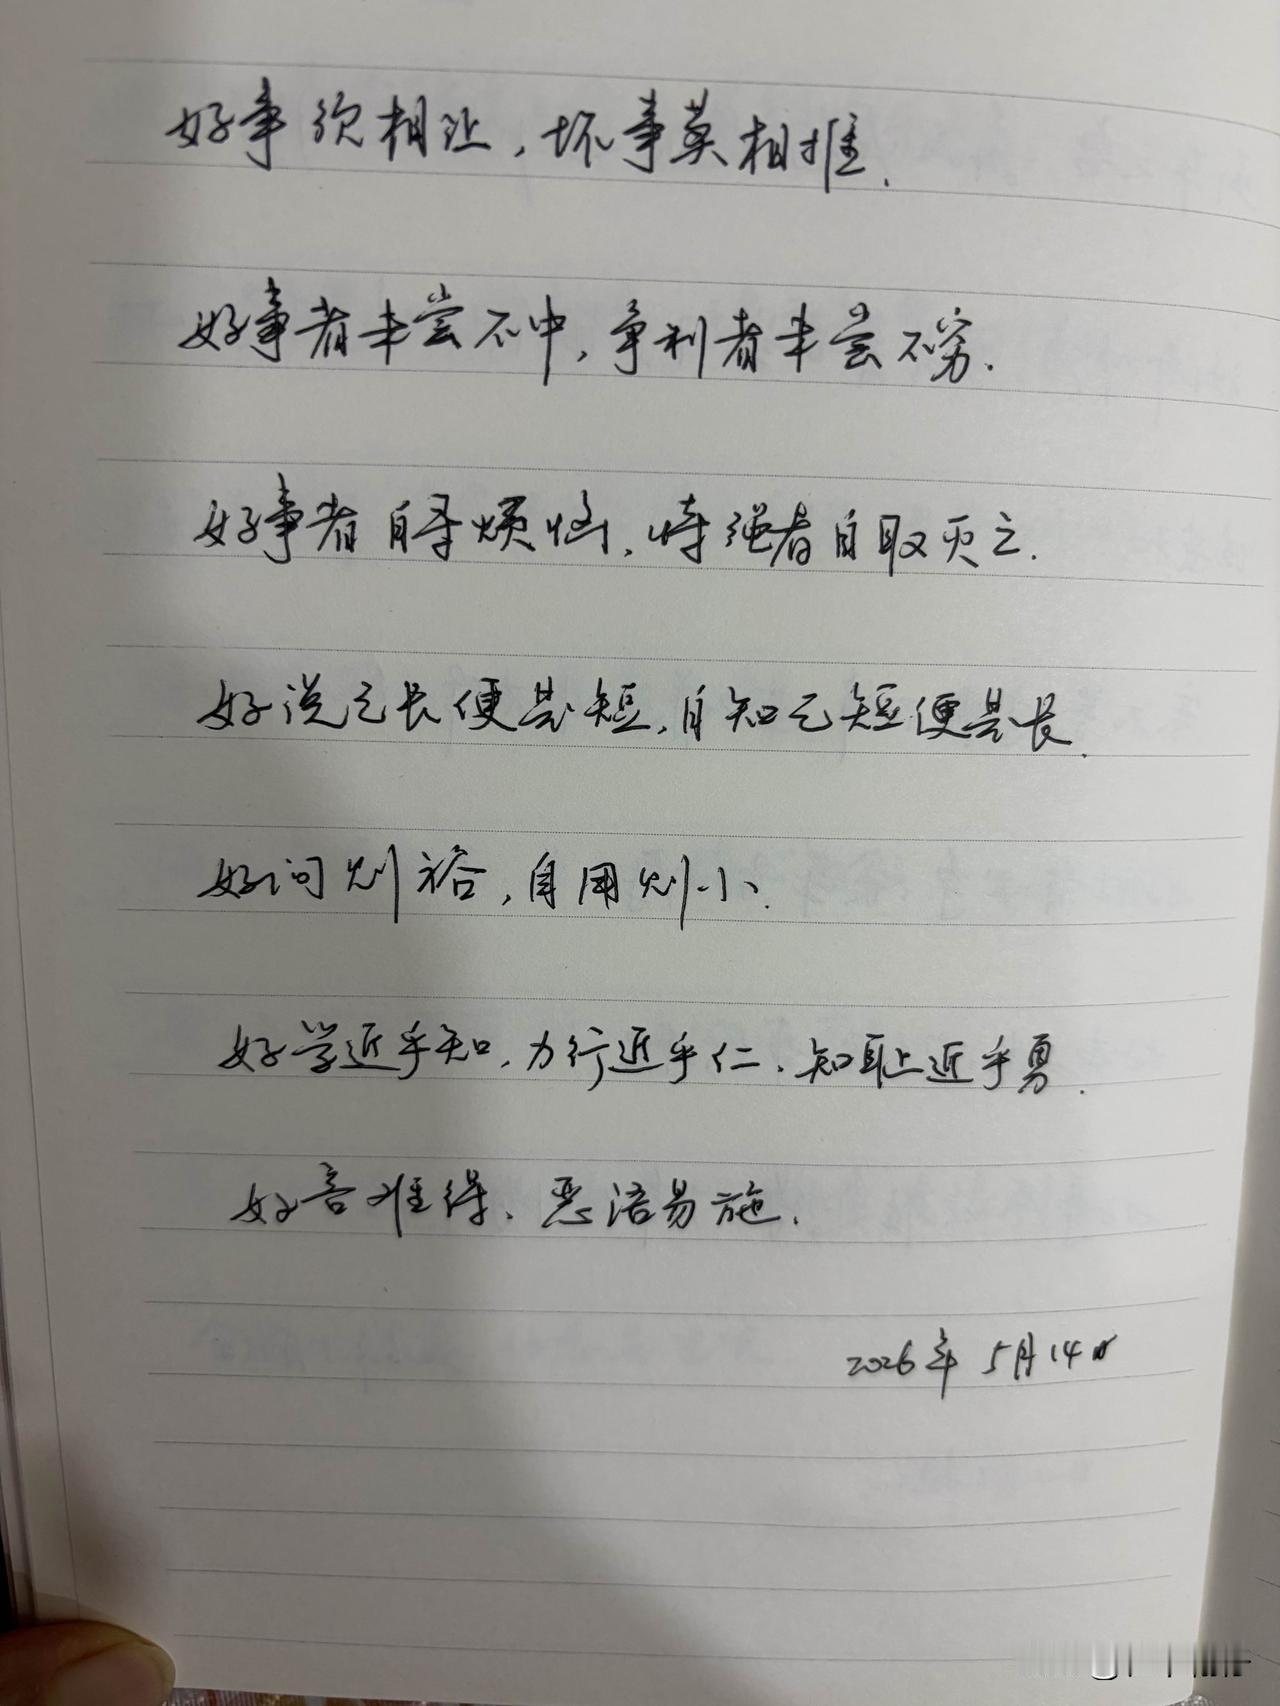 好事须相让，坏事莫相推.
好事者未尝不中，争利者未尝不穷.
好事者自寻烦恼，恃强者自取灭亡.
好说己长便是短，自知己短便是长.
好问则裕，自用则小.
好学近乎知，力行近乎仁，知耻近乎勇.
好言难得，恶语易施.
2026年5月14日